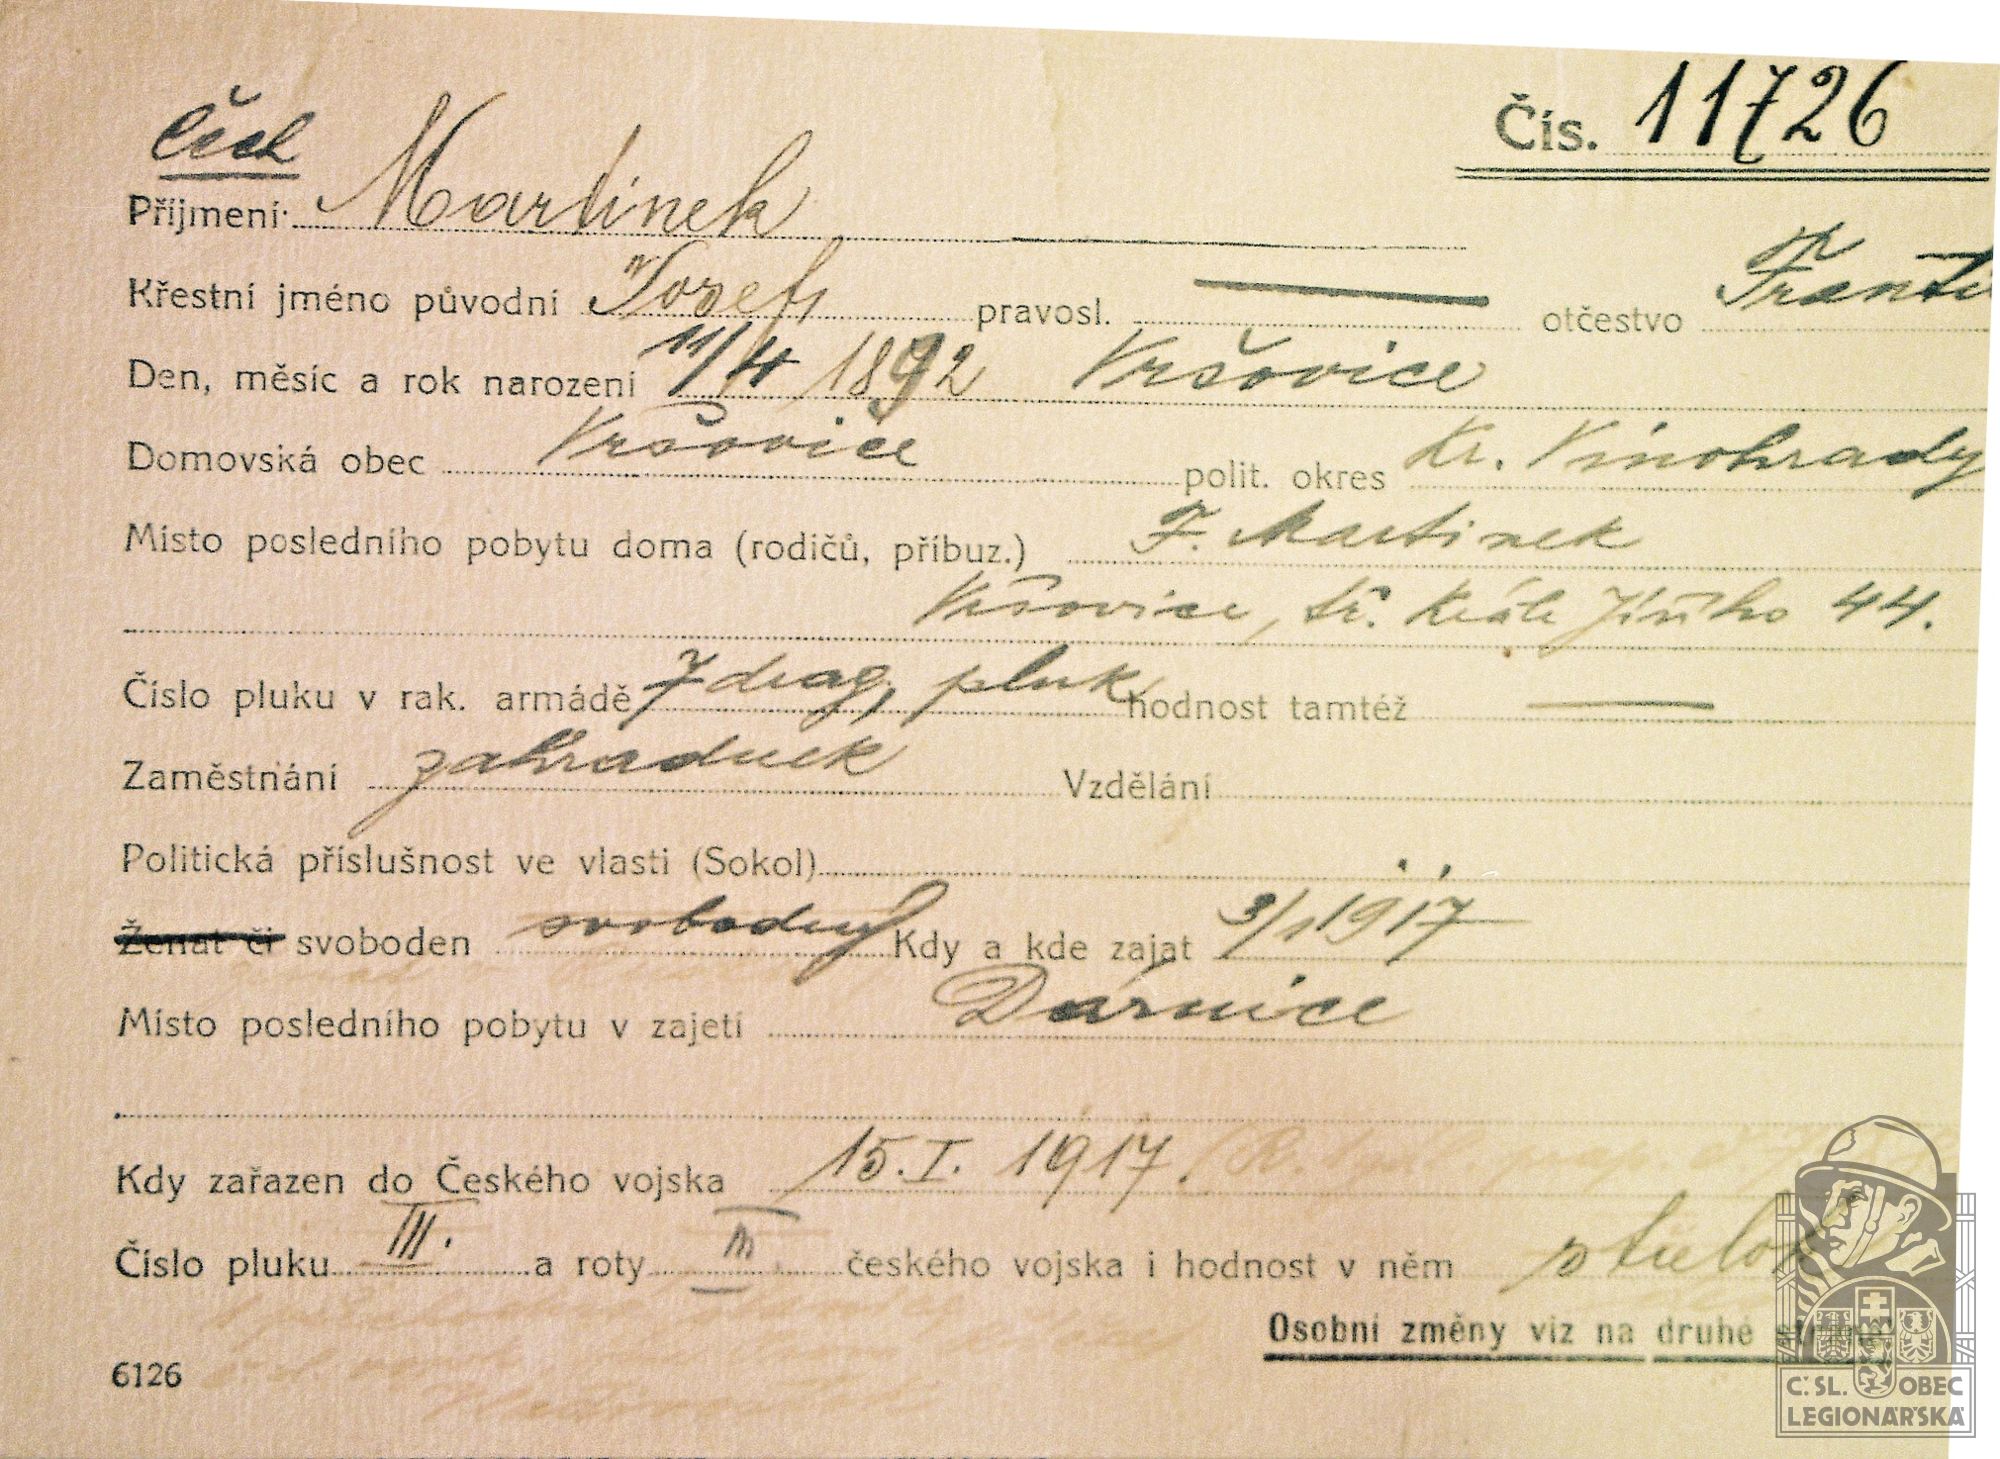 Čís. 11726
Čech
Příjmení Martínek
Křestní jméno původní Josef pravosl. — otčestvo Franti
Den, měsíc a rok narození 11/4 1892 Vršovice
Domovská obec Vršovice polit. okres Kr. Vinohrady
Místo posledního pobytu doma (rodičů, příbuz.) F. Martinek
Vršovice, tř. Krále Jiřího 44.
Číslo pluku v rak. armádě 7 drag, pluk hodnost tamtéž —
Zaměstnání zahradnik Vzdělání
Politická příslušnost ve vlasti (Sokol)
Ženat či svoboden svobodný Kdy a kde zajat 3/1 1917
Místo posledního pobytu v zajetí Darnice
Kdy zařazen do Českého vojska 15. I. 1917.
Číslo pluku III. a roty III. českého vojska i hodnost v něm střelok
Osobní změny viz na druhé
6126
Č.SL. OBEC
LEGIONÁŘSKÁ